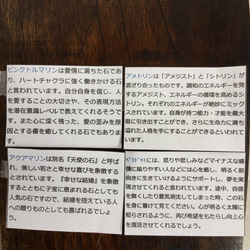 ピンクトルマリンは愛情に満ちた石であ
り、ハートチャクラに強く働きかける石
と言われています。自分自身を信じ、人
を愛することの大切さや、その表現方法
を潜在意識レベルで教えてくれるそうで
す。また心に深く残った、愛の歪みを原
因とする傷を癒してくれる石でもありま
す。
アメトリンは「アメジスト」と「シトリン」が
混ざり合ったものです。調和のエネルギーを
発するアメジスト、エネルギーの循環を高めるシ
トリン、それぞれのエネルギーが絶妙にミックス
されています。自身が持つ能力・才能を最大
限に引き出すことができ、さらに生命力に満ち
溢れた人格を手にすることができるといわれて
います。
アクアマリンは別名『天使の石』と呼ば
れ、美しい若さと幸せな喜びを象徴す
るとされます。『幸せな結婚』を象徴
するとともに子宝に恵まれる石としても
人気の石ですので、結婚を控えている人
への贈りものとしても喜ばれるでしょ
う。
には、怒りや悲しみなどマイナスな感
情に陥りやすい人などには心を癒し、明るく前
向きに生きていけるようにサポートし、夢を実
現させてくれると言われています。途中、自信
を無くしたり意気消沈してしまった時、この石
を手に取り、眺めてください。心が明るく太陽に
照らされるように、再び希望をもたらし向上心
を復活させてくれるでしょう。